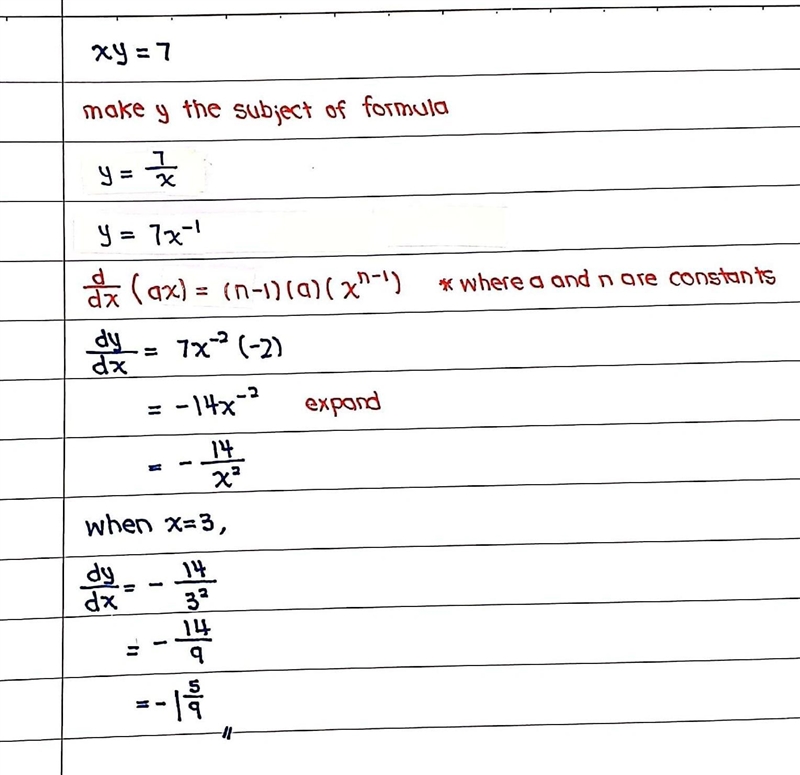 xy = 7
make y the subject of formula
y = 7/x
y = 7x⁻¹
d/dx (ax) = (n-1)(a)(xⁿ⁻¹) * where a and n are constants
dy/dx = 7x⁻²(-2)
= -14x⁻² expand
= - 14/x²
when x=3,
dy/dx = - 14/3²
= - 14/9
= -1 5/9 //